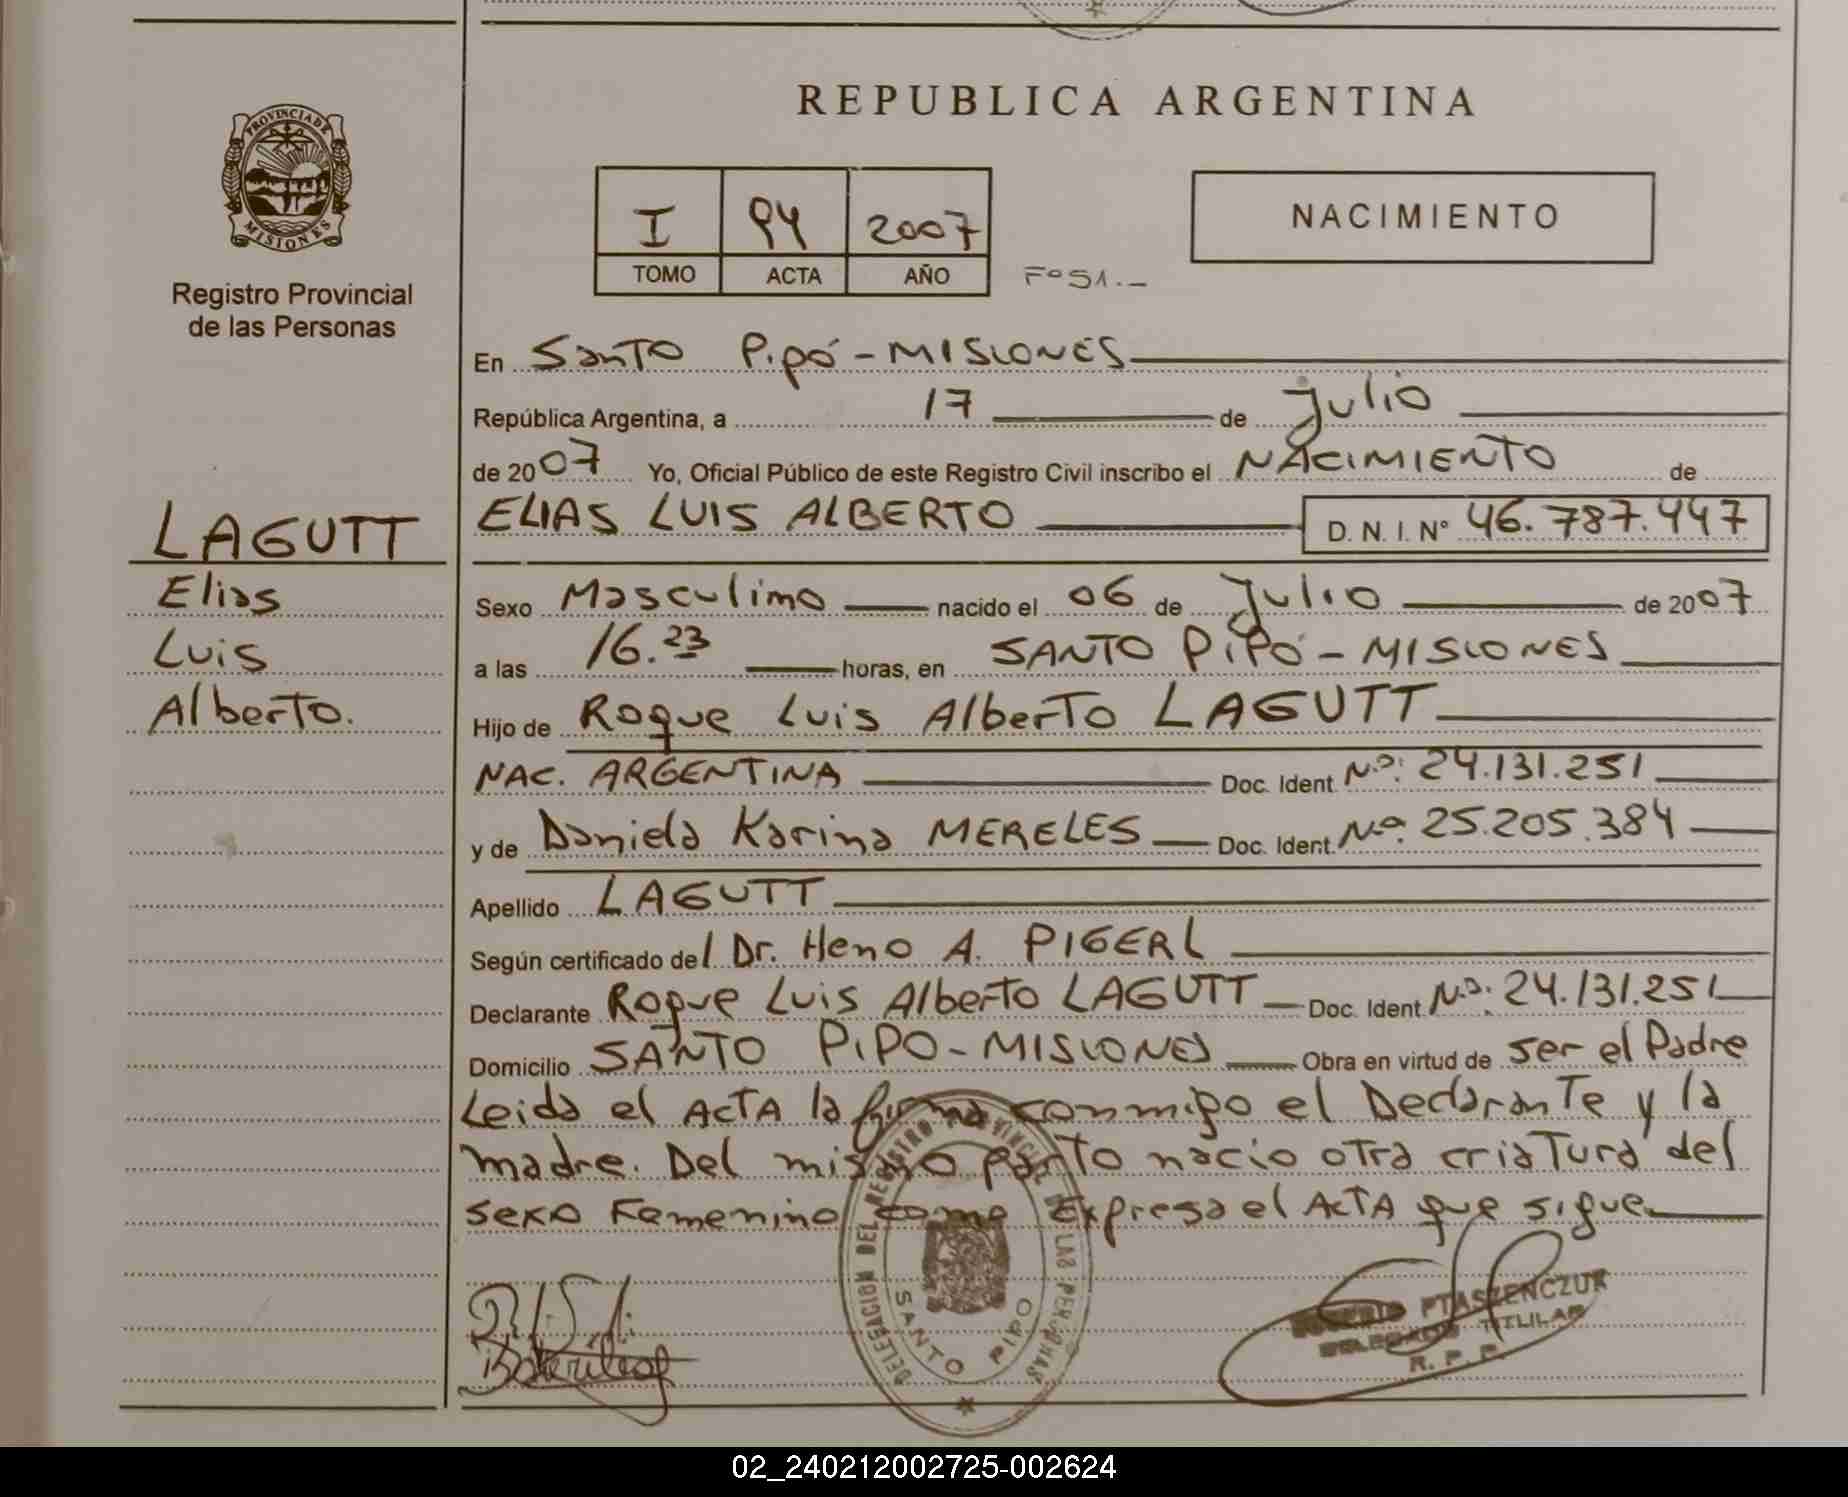 REPUBLICA ARGENTINA
PROVINCIA DE
MISIONES
Registro Provincial
de las Personas
I 94 2007
TOMO ACTA AÑO
Fº 51.-
NACIMIENTO
En Santo Pipó - MISIONES
República Argentina, a 17 de julio
de 2007 Yo, Oficial Público de este Registro Civil inscribo el NACIMIENTO de
ELIAS LUIS ALBERTO D. N. I. Nº 46.787.447
LAGUTT
Elias
Luis
Alberto.
Sexo Masculino nacido el 06 de Julio de 2007
a las 16.23 horas, en SANTO PiPó - MISIONES
Hijo de Roque Luis Alberto LAGUTT
NAC. ARGENTINA Doc. Ident. Nº: 24.131.251
y de Daniela Karina MERELES Doc. Ident. Nº. 25.205.384
Apellido LAGUTT
Según certificado del Dr. Heno A. PIGERL
Declarante Roque Luis Alberto LAGUTT Doc. Ident. Nº: 24.131.251
Domicilio SANTO PiPO - MISIONES Obra en virtud de ser el Padre
Leida el ACTA la firma conmigo el Declarante y la
madre. Del mismo parto nacio otra criatura del
sexo Femenino como Expresa el ACTA que sigue.
DELEGACION DEL REGISTRO PROVINCIAL DE LAS PERSONAS
SANTO PIPO
PTASZENCZUK
DELEGADO TITULAR
R. P. P.
02_240212002725-002624